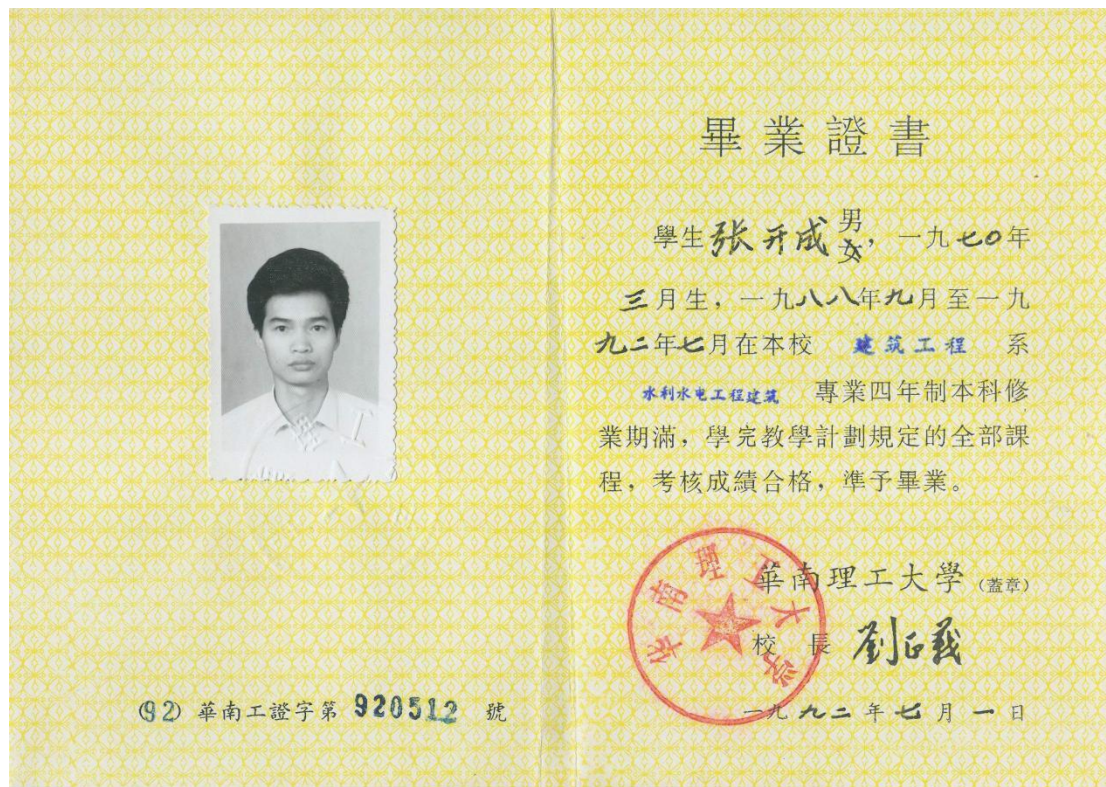 畢業證書
學生张开成男女，一九七〇年
三月生，一九八八年九月至一九
九二年七月在本校 建筑工程 系
水利水电工程建筑 專業四年制本科修
業期滿，學完教學計劃規定的全部課
程，考核成績合格，準予畢業。
華南理工大學（蓋章）
校長 劉正義
一九九二年七月一日
华南理工大学
(92) 華南工證字第 920512 號